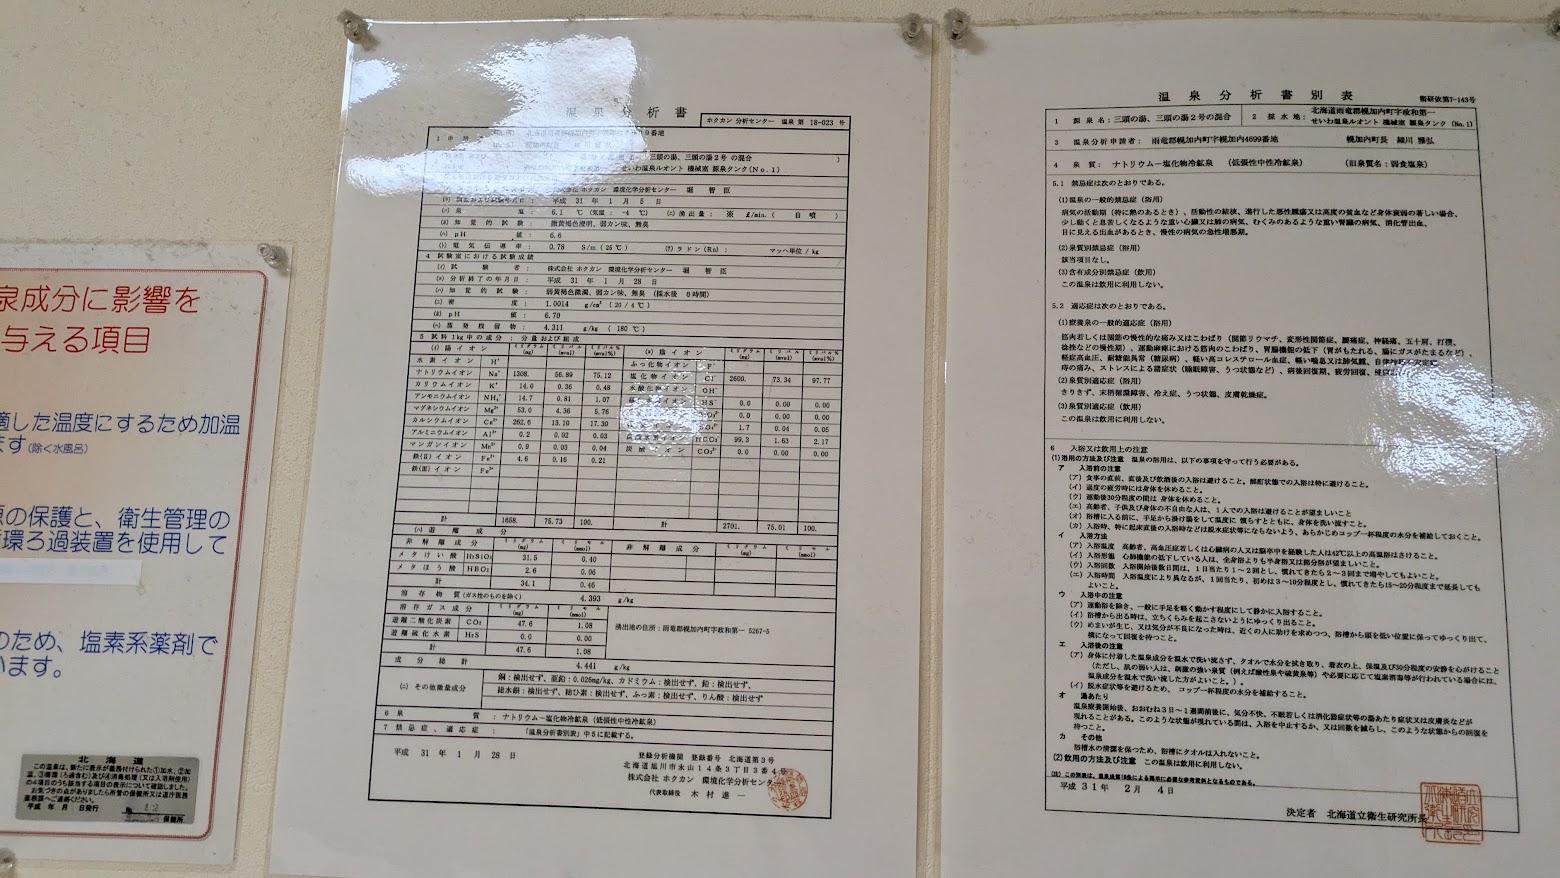 泉成分に影響を
与える項目
適した温度にするため加温
ます(除く水風呂)
源の保護と、衛生管理の
循環ろ過装置を使用して
のため、塩素系薬剤で
います。
北海道
保健所
温泉分析書
ホクカン 分析センター 温泉 第 18-023 号
三頭の湯、三頭の湯2号 の混合
せいわ温泉ルオント 機械室 源泉タンク(No.1)
環境化学分析センター 堀 智臣
平成 31年 1月 5日
泉温: 6.1 ℃ (気温: -4 ℃) (ニ) 湧出量: ※ ℓ/min. ( 自噴 )
知覚的試験: 微黄褐色澄明、弱カン味、無臭
pH値: 6.6
電気伝導率: 0.78 S/m (25℃) ラドン(Rn): マッヘ単位/kg
4 試験室における試験成績
試験者: 株式会社 ホクカン 環境化学分析センター 堀 智臣
分析終了の年月日: 平成 31年 1月 28日
知覚的試験: 弱黄褐色微濁、弱カン味、無臭 (採水後 6時間)
密度: 1.0014 g/cm³ (20/4℃)
pH値: 6.70
蒸発残留物: 4.311 g/kg (180℃)
5 試料1kg中の成分: 分量および組成
陽イオン ミリグラム(mg) ミリバル(mval) ミリバル%(mval%)
水素イオン H⁺
ナトリウムイオン Na⁺ 1308. 56.89 75.12
カリウムイオン K⁺ 14.0 0.36 0.48
アンモニウムイオン NH₄⁺ 14.7 0.81 1.07
マグネシウムイオン Mg²⁺ 53.0 4.36 5.76
カルシウムイオン Ca²⁺ 262.6 13.10 17.30
アルミニウムイオン Al³⁺ 0.2 0.02 0.03
マンガンイオン Mn²⁺ 0.9 0.03 0.04
鉄(Ⅱ)イオン Fe²⁺ 4.6 0.16 0.21
鉄(Ⅲ)イオン Fe³⁺
計 1658. 75.73 100.
陰イオン ミリグラム(mg) ミリバル(mval) ミリバル%(mval%)
ふっ化物イオン F⁻
塩化物イオン Cl⁻ 2600. 73.34 97.77
水酸化物イオン OH⁻
HS⁻ 0.0 0.00 0.00
0.0 0.00 0.00
1.7 0.04 0.05
HCO₃⁻ 99.3 1.63 2.17
炭酸イオン CO₃²⁻ 0.0 0.00 0.00
計 2701. 75.01 100.
遊離成分
非解離成分 ミリグラム(mg) ミリモル(mmol) 非解離成分 ミリグラム(mg) ミリモル(mmol)
メタけい酸 H₂SiO₃ 31.5 0.40
メタほう酸 HBO₂ 2.6 0.06
計 34.1 0.46
溶存物質(ガス性のものを除く) 4.393 g/kg
溶存ガス成分 ミリグラム(mg) ミリモル(mmol)
遊離二酸化炭素 CO₂ 47.6 1.08
遊離硫化水素 H₂S 0.0 0.00
計 47.6 1.08
湧出地の住所: 雨竜郡幌加内町字政和第一 5267-5
成分総計 4.441 g/kg
(ニ) その他微量成分
銅:検出せず、亜鉛:0.026mg/kg、カドミウム:検出せず、鉛:検出せず、
総水銀:検出せず、総ひ素:検出せず、ふっ素:検出せず、りん酸:検出せず
6 泉質: ナトリウム−塩化物冷鉱泉 (低張性中性冷鉱泉)
7 禁忌症、適応症: 「温泉分析書別表」中5に記載する。
平成 31年 1月 28日
登録分析機関 登録番号 北海道第3号
北海道旭川市永山14条3丁目3番4号
株式会社 ホクカン 環境化学分析センター
代表取締役 木村進一
温泉分析書別表
衛研依第7-143号
1 源泉名:三頭の湯、三頭の湯2号の混合
2 採水地: 北海道雨竜郡幌加内町字政和第一
せいわ温泉ルオント 機械室 源泉タンク (No.1)
3 温泉分析申請者: 雨竜郡幌加内町字幌加内4699番地 幌加内町長 細川 雅弘
4 泉質: ナトリウム−塩化物冷鉱泉 (低張性中性冷鉱泉) (旧泉質名:弱食塩泉)
5.1 禁忌症は次のとおりである。
(1)温泉の一般的禁忌症 (浴用)
病気の活動期(特に熱のあるとき)、活動性の結核、進行した悪性腫瘍又は高度の貧血など身体衰弱の著しい場合、
少し動くと息苦しくなるような重い心臓又は肺の病気、むくみのあるような重い腎臓の病気、消化管出血、
目に見える出血があるとき、慢性の病気の急性増悪期。
(2)泉質別禁忌症 (浴用)
該当項目なし。
(3)含有成分別禁忌症 (飲用)
この温泉は飲用に利用しない。
5.2 適応症は次のとおりである。
(1)療養泉の一般的適応症 (浴用)
筋肉若しくは関節の慢性的な痛み又はこわばり (関節リウマチ、変形性関節症、腰痛症、神経痛、五十肩、打撲、
捻挫などの慢性期)、運動麻痺における筋肉のこわばり、胃腸機能の低下 (胃がもたれる、腸にガスがたまるなど)、
軽症高血圧、耐糖能異常 (糖尿病)、軽い高コレステロール血症、軽い喘息又は肺気腫、
痔の痛み、ストレスによる諸症状 (睡眠障害、うつ状態など)、病後回復期、疲労回復、
(2)泉質別適応症 (浴用)
きりきず、末梢循環障害、冷え症、うつ状態、皮膚乾燥症。
(3)泉質別適応症 (飲用)
この温泉は飲用に利用しない。
6 入浴又は飲用上の注意
(1)浴用の方法及び注意 温泉の浴用は、以下の事項を守って行う必要がある。
ア 入浴前の注意
(ア) 食事の直前、直後及び飲酒後の入浴は避けること。酩酊状態での入浴は特に避けること。
(イ) 過度の疲労時には身体を休めること。
(ウ) 運動後30分程度の間は 身体を休めること。
(エ) 高齢者、子供及び身体の不自由な人は、1人での入浴は避けることが望ましいこと
(オ) 浴槽に入る前に、手足から掛け湯をして温度に 慣らすとともに、身体を洗い流すこと。
(カ) 入浴時、特に起床直後の入浴時などは脱水症状等にならないよう、あらかじめコップ一杯程度の水分を補給しておくこと。
イ 入浴方法
(ア) 入浴温度 高齢者、高血圧症若しくは心臓病の人又は脳卒中を経験した人は42℃以上の高温浴はさけること。
(イ) 入浴形態 心肺機能の低下している人は、全身浴よりも半身浴又は部分浴が望ましいこと。
(ウ) 入浴回数 入浴開始後数日間は、1日当たり1〜2回とし、慣れてきたら2〜3回まで増やしてもよいこと。
(エ) 入浴時間 入浴温度により異なるが、1回当たり、初めは3〜10分程度とし、慣れてきたら15〜20分程度まで延長しても
よいこと。
ウ 入浴中の注意
(ア) 運動浴を除き、一般に手足を軽く動かす程度にして静かに入浴すること。
(イ) 浴槽から出る時は、立ちくらみを起こさないようにゆっくり出ること。
(ウ) めまいが生じ、又は気分が不良になった時は、近くの人に助けを求めつつ、浴槽から頭を低い位置に保ってゆっくり出て、
横になって回復を待つこと。
エ 入浴後の注意
(ア) 身体に付着した温泉成分を温水で洗い流さず、タオルで水分を拭き取り、着衣の上、保温及び30分程度の安静を心がけること
(ただし、肌の弱い人は、刺激の強い泉質 (例えば酸性泉や硫黄泉等) や必要に応じて塩素消毒等が行われている場合には、
温泉成分を温水で洗い流した方がよいこと。)。
(イ) 脱水症状等を避けるため、コップ一杯程度の水分を補給すること。
オ 湯あたり
温泉療養開始後、おおむね3日〜1週間前後に、気分不快、不眠若しくは消化器症状等の湯あたり症状又は皮膚炎などが
現れることがある。このような状態が現れている間は、入浴を中止するか、又は回数を減らし、このような状態からの回復を
待つこと。
カ その他
浴槽水の清潔を保つため、浴槽にタオルは入れないこと。
(2)飲用の方法及び注意 この温泉は飲用に利用しない。
(注) この別表は、温泉法第18条による掲示に必要な参考資料となるものである。
平成 31年 2月 4日
決定者 北海道立衛生研究所長